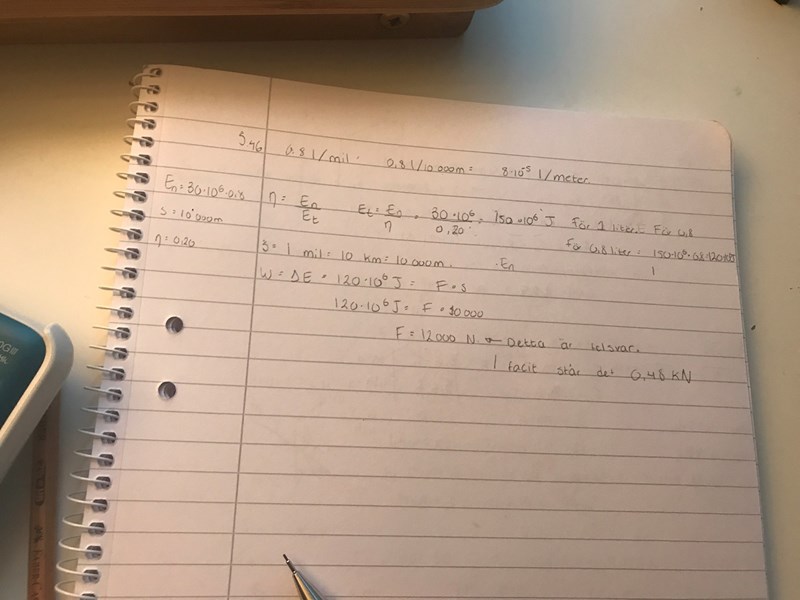 0,8 l/mil. 0,8 l/10 000m = 8·10⁻⁵ l/meter.
En = 30·10⁶·0,8
η = En/Et Et = En/η = 30·10⁶/0,20 = 150·10⁶ J För 1 liter. För 0,8
s = 10 000m
för 0,8 liter = 150·10⁶·0,8
η = 0,20
s = 1 mil = 10 km = 10 000m. · En
W = ΔE = 120·10⁶ J = F·s
120·10⁶ J = F·10000
F = 12000 N. ← Detta är felsvar.
I facit står det 0,48 kN